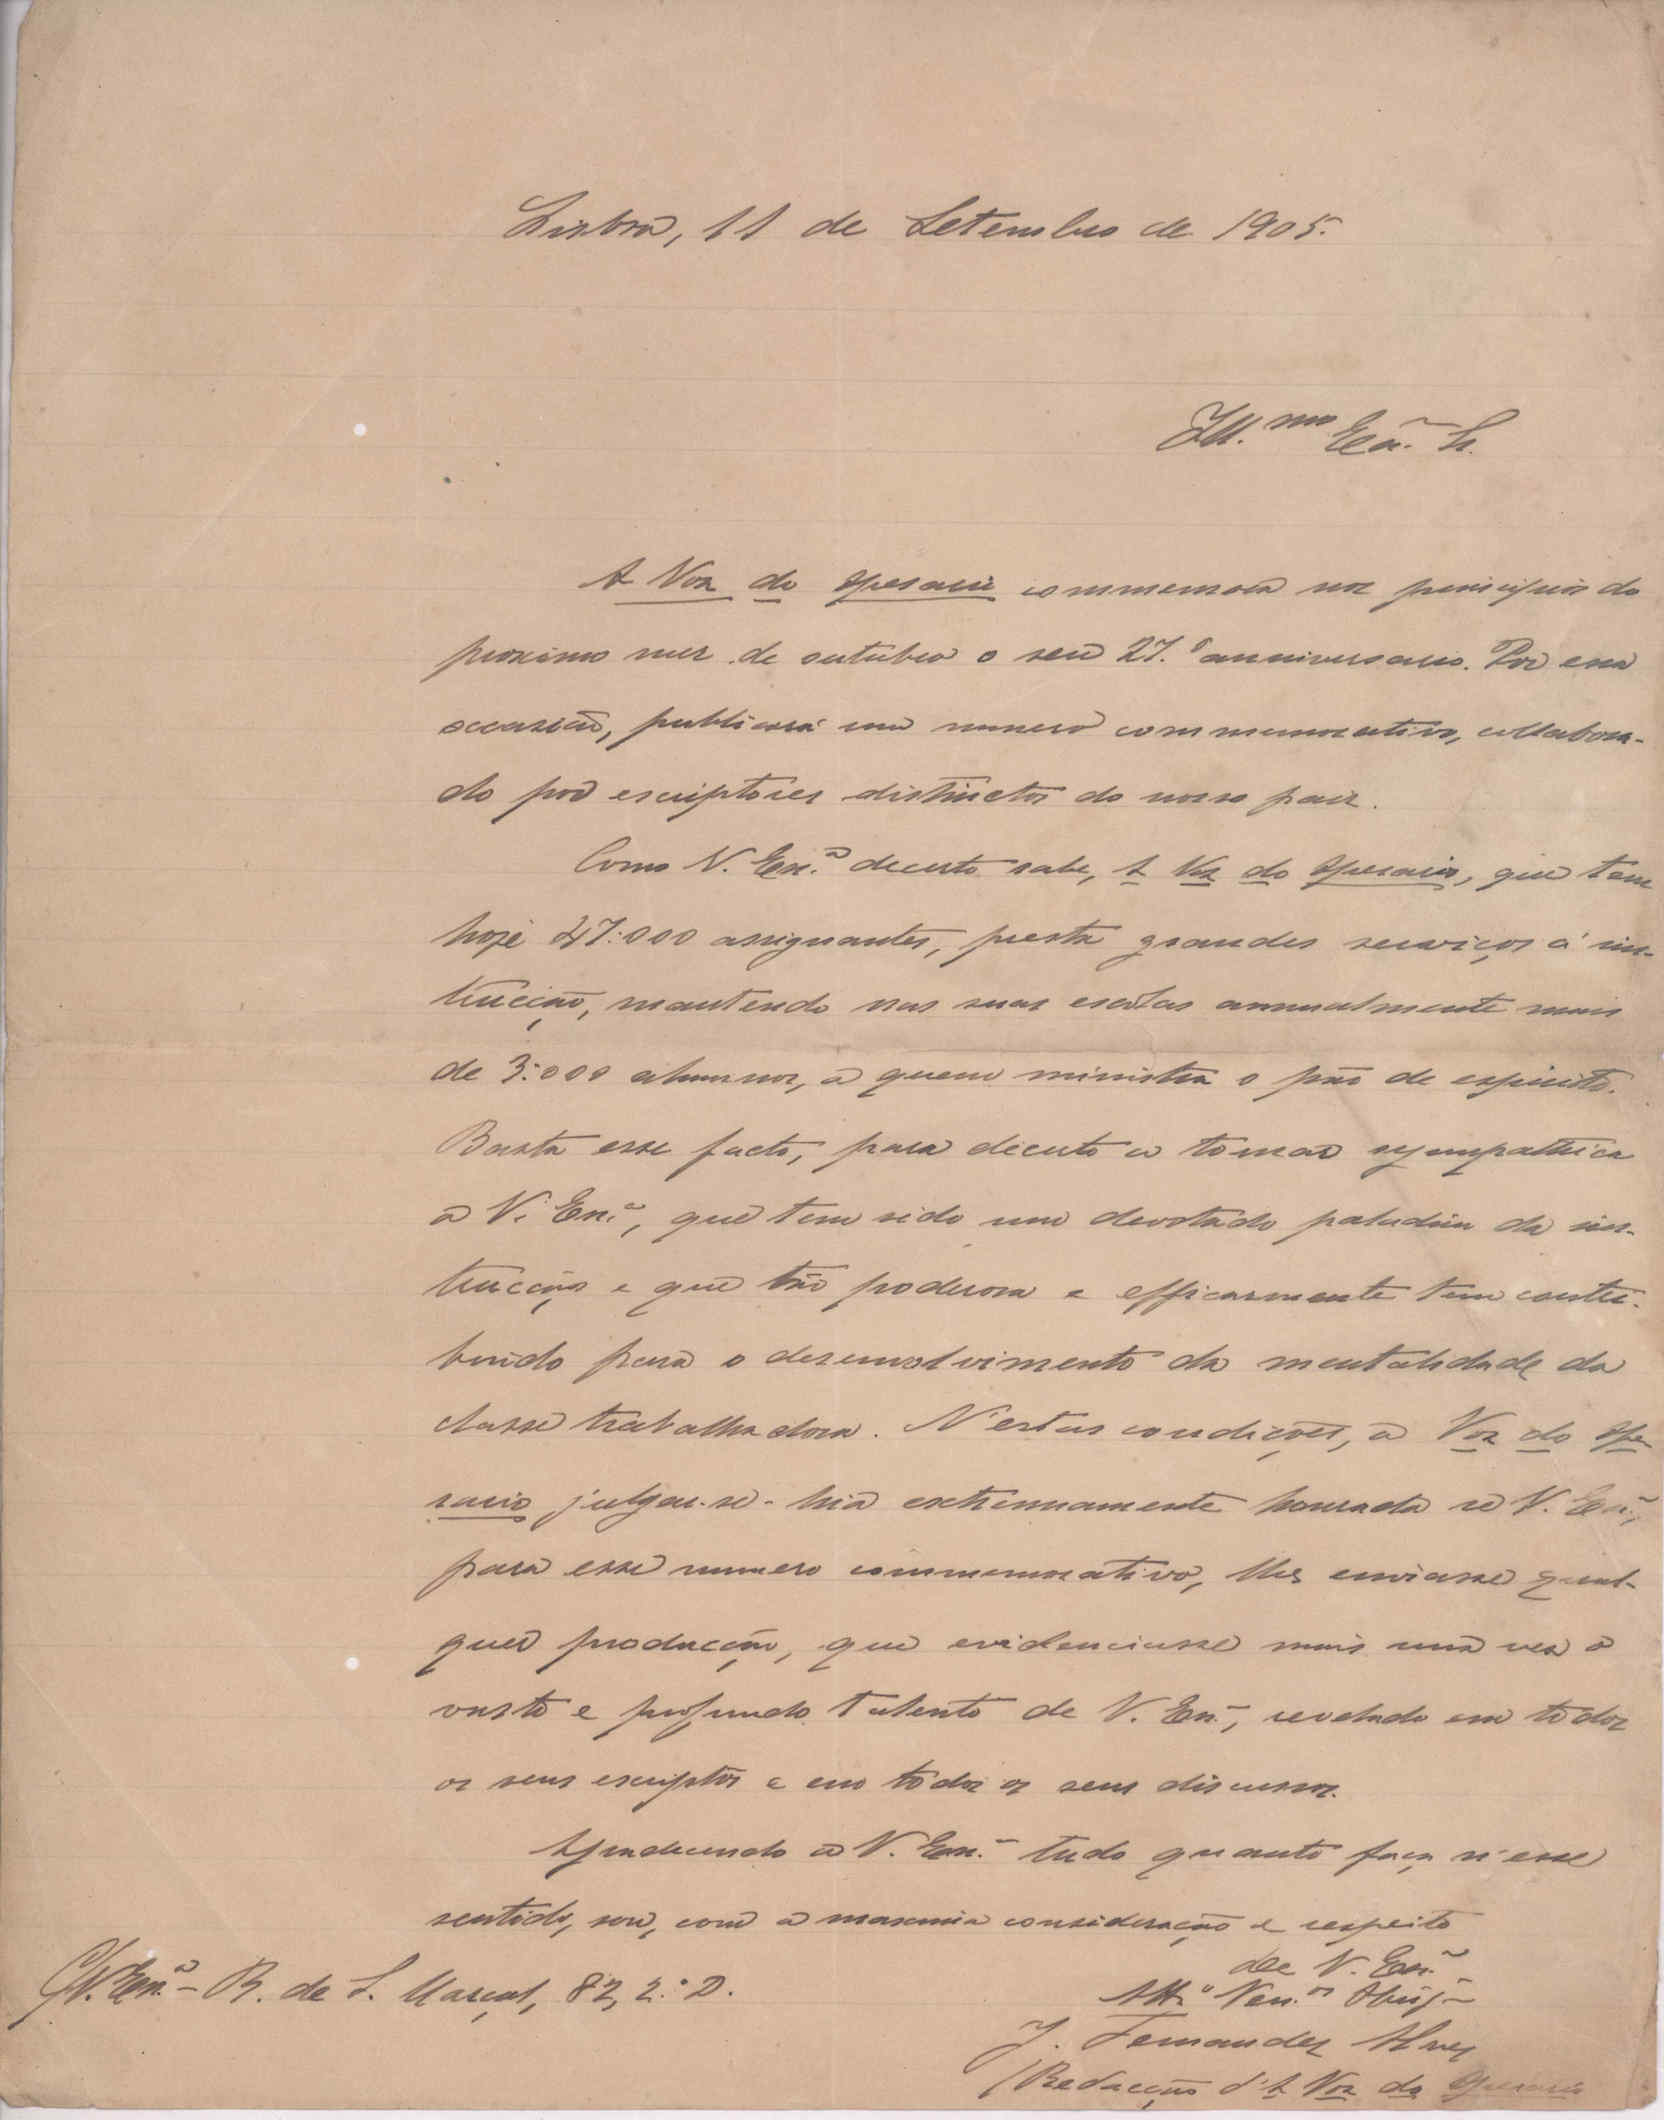 Lisboa, 11 de Setembro de 1905.
Ill.mo Exmo. Sr.
A Voz do Operario commemora nos principios do
proximo mez de outubro o seu 27.º anniversario. Por essa
occasião, publicará um numero commemorativo, collabora-
do por escriptores distinctos do nosso paiz.
Como V. Ex.ª decerto sabe, A Voz do Operario, que tem
hoje 47:000 assignantes, presta grandes serviços á ins-
trucção, mantendo nas suas escolas annualmente mais
de 3:000 alumnos, a quem ministra o pão de espirito.
Basta esse facto, para decerto a tornar sympathica
a V. Ex.ª, que tem sido um devotado paladin da ins-
trucção e que tão poderosa e efficazmente tem contri-
buido para o desenvolvimento da mentalidade da
classe trabalhadora. N'estas condições, a Voz do Ope-
rario julgar-se-hia extremamente honrada se V. Ex.ª,
para esse numero commemorativo, lhe enviasse qual-
quer producção, que evidenciasse mais uma vez o
vasto e profundo talento de V. Ex.ª, revelado em todos
os seus escriptos e em todos os seus discursos.
Agradecendo a V. Ex.ª tudo quanto faça n'esse
sentido, sou, com a maxima consideração e respeito
de V. Ex.ª
Att.º Ven.or Obrig.º
C/V. Ex.ª - R. de S. Marçal, 82, 2.º D.
J. Fernandes Alves
(Redacção d'A Voz do Operario